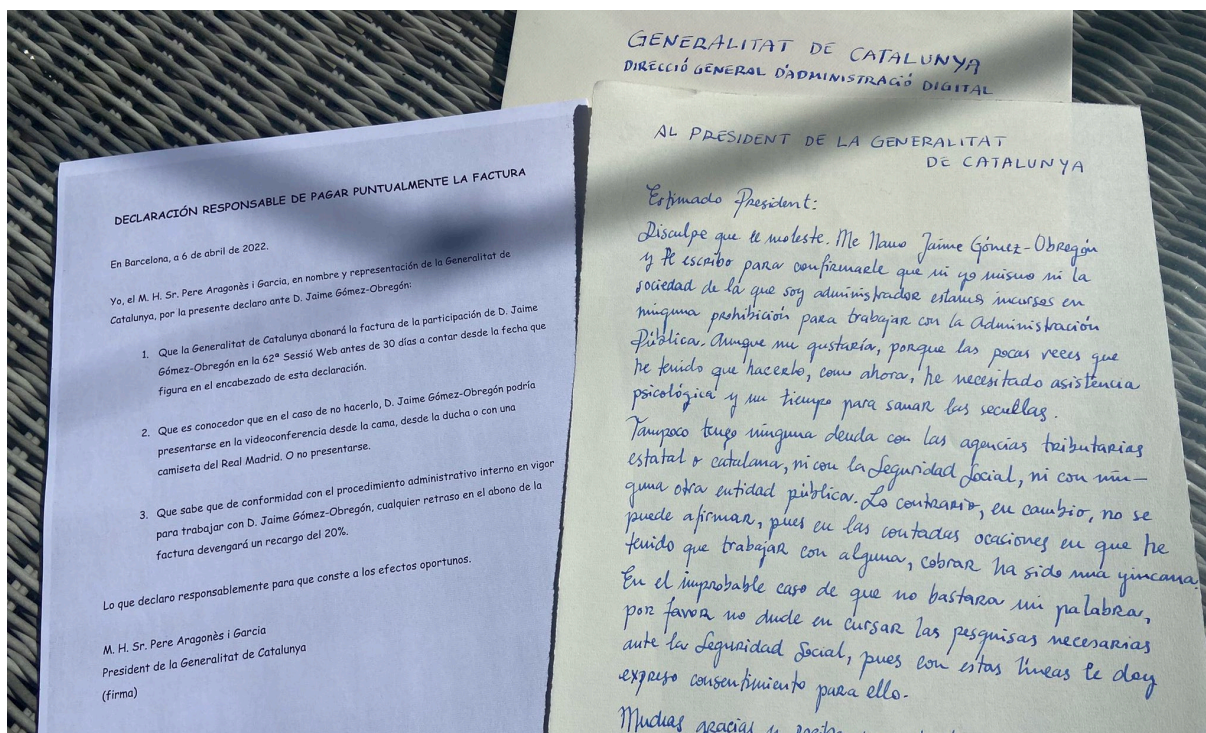 GENERALITAT DE CATALUNYA
DIRECCIÓ GENERAL D'ADMINISTRACIÓ DIGITAL
DECLARACIÓN RESPONSABLE DE PAGAR PUNTUALMENTE LA FACTURA
En Barcelona, a 6 de abril de 2022.
Yo, el M. H. Sr. Pere Aragonès i Garcia, en nombre y representación de la Generalitat de
Catalunya, por la presente declaro ante D. Jaime Gómez-Obregón:
1. Que la Generalitat de Catalunya abonará la factura de la participación de D. Jaime
Gómez-Obregón en la 62ª Sessió Web antes de 30 días a contar desde la fecha que
figura en el encabezado de esta declaración.
2. Que es conocedor que en el caso de no hacerlo, D. Jaime Gómez-Obregón podría
presentarse en la videoconferencia desde la cama, desde la ducha o con una
camiseta del Real Madrid. O no presentarse.
3. Que sabe que de conformidad con el procedimiento administrativo interno en vigor
para trabajar con D. Jaime Gómez-Obregón, cualquier retraso en el abono de la
factura devengará un recargo del 20%.
Lo que declaro responsablemente para que conste a los efectos oportunos.
M. H. Sr. Pere Aragonès i Garcia
President de la Generalitat de Catalunya
(firma)
AL PRESIDENT DE LA GENERALITAT
DE CATALUNYA
Estimado President:
Disculpe que le moleste. Me llamo Jaime Gómez-Obregón
y le escribo para confirmarle que ni yo mismo ni la
sociedad de la que soy administrador estamos incursos en
ninguna prohibición para trabajar con la Administración
Pública. Aunque me gustaría, porque las pocas veces que
he tenido que hacerlo, como ahora, he necesitado asistencia
psicológica y un tiempo para sanar las secuelas.
Tampoco tengo ninguna deuda con las agencias tributarias
estatal o catalana, ni con la Seguridad Social, ni con nin-
guna otra entidad pública. Lo contrario, en cambio, no se
puede afirmar, pues en las contadas ocasiones en que he
tenido que trabajar con alguna, cobrar ha sido una yincana.
En el improbable caso de que no bastara mi palabra,
por favor no dude en cursar las pesquisas necesarias
ante la Seguridad Social, pues con estas líneas le doy
expreso consentimiento para ello.
Muchas gracias y